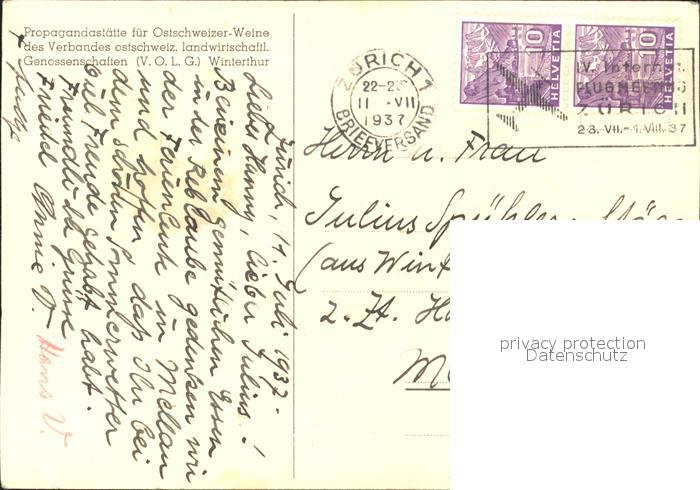 Propagandastätte für Ostschweizer-Weine
des Verbandes ostschweiz. landwirtschaftl.
Genossenschaften (V. O. L. G.) Winterthur
Zürich, 11. Juli 1937.
Lieber Hanny, lieber Julius!
Bei einem gemütlichen Essen
in der Reblaube gedenken wir
der Ferienleute in Mellau
und hoffen daß Ihr bei
dem schönen Sommerwetter
viel Freude gehabt habt.
Freundliche Grüsse
Friedel Annie V. Hans V.
ZÜRICH 1
22-23
11.-VII
1937
BRIEFVERSAND
10
HELVETIA
10
HELVETIA
IV. Internat.
FLUGMEETING
ZÜRICH
23. VII.-1. VIII. 37
Herrn u. Frau
Julius Spühler-
(aus Wint
z. Zt. H
M
privacy protection
Datenschutz